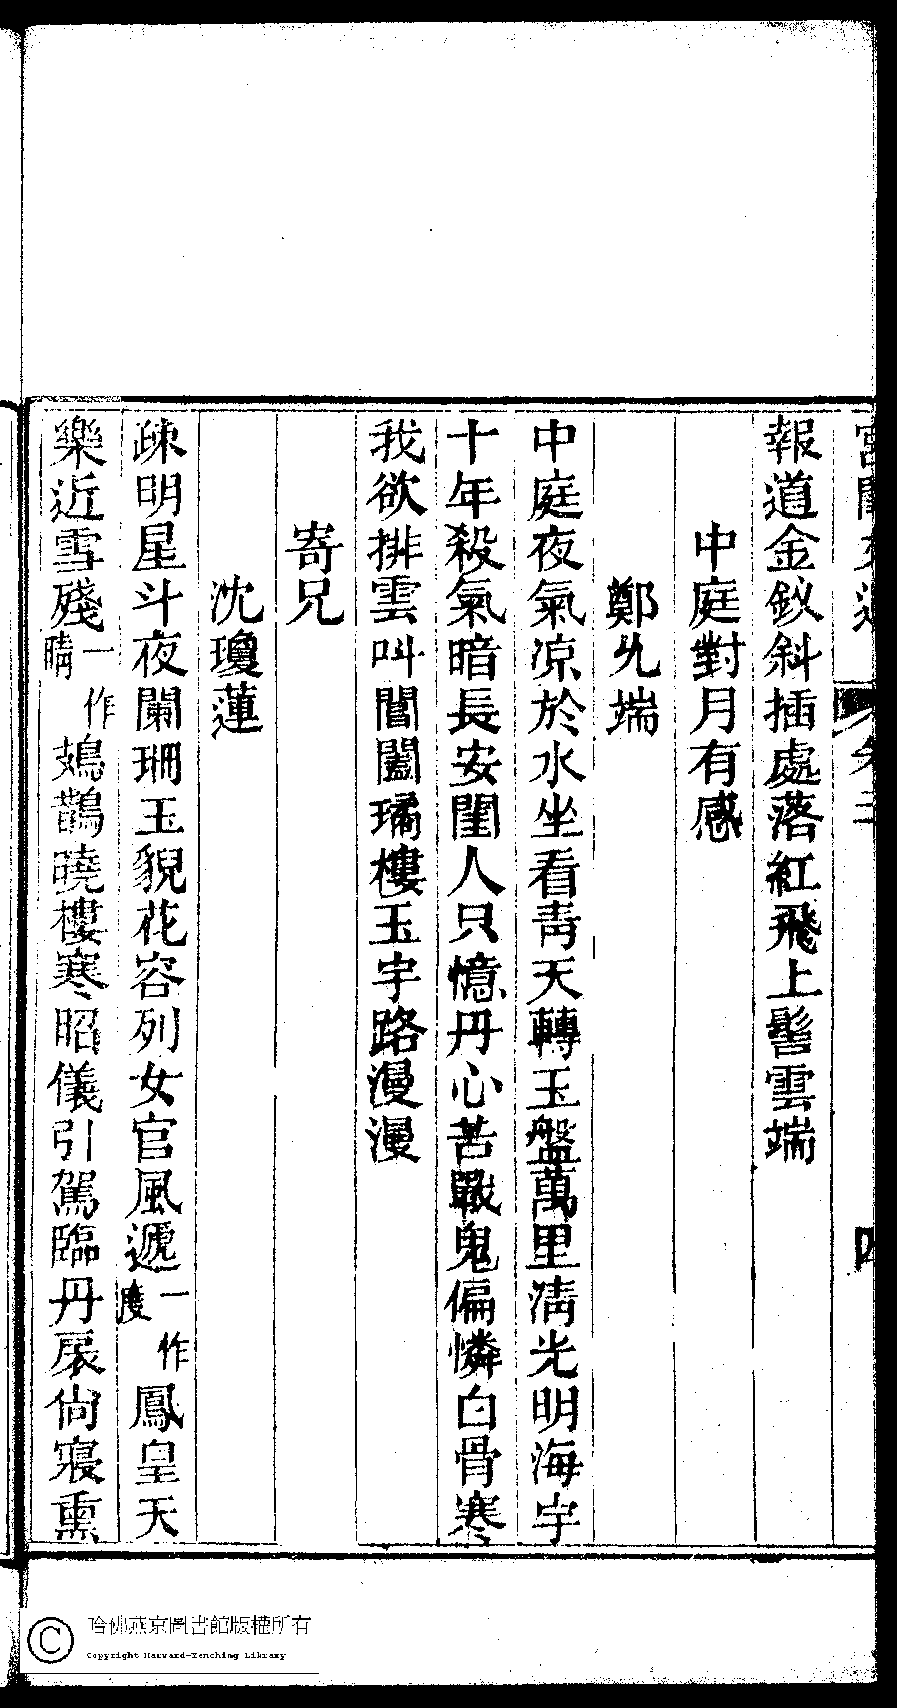 宮閨文選 卷三 四
報道金釵斜插處落紅飛上髻雲端
中庭對月有感
鄭允端
中庭夜氣凉於水坐看靑天轉玉盤萬里淸光明海宇
十年殺氣暗長安閨人只憶丹心苦戰鬼偏憐白骨寒
我欲排雲叫閶闔璚樓玉宇路漫漫
寄兄
沈瓊蓮
疎明星斗夜闌珊玉貌花容列女官風遞一作度鳳皇天
樂近雪殘一作晴鳷鵲曉樓寒昭儀引駕臨丹扆尙寢熏
哈佛燕京圖書館版權所有
Copyright Harvard-Yenching Library